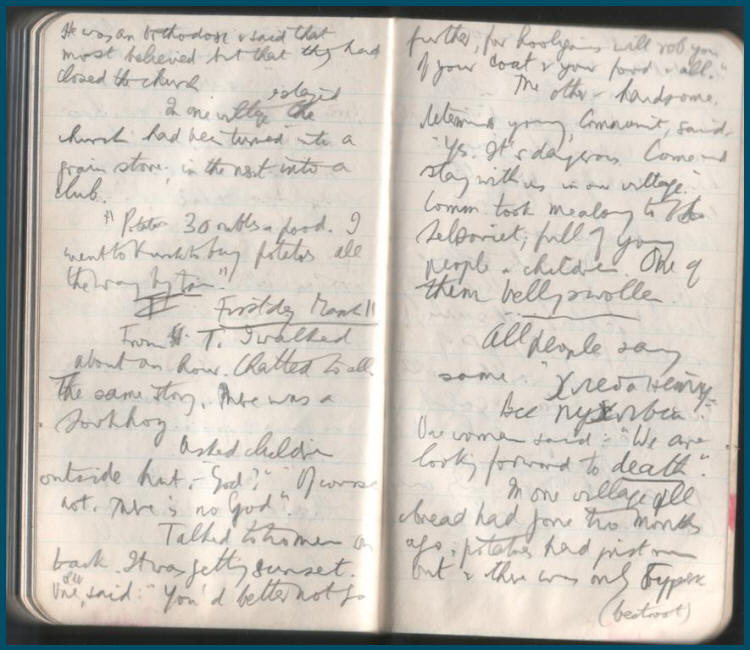 He was an Orthodox & said that
most believed but that they had
closed the church
In one village the
church had been turned into a
grain store, in the next into a
club.
"Potatoes 30 roubles a pood. I
went to Kursk to buy potatoes all
the way by train."
First day March 11
From T. I walked
about an hour. Chatted to all.
The same story. There was a
Sovkhoz
Asked children
outside hut, - "God?" "Of course
not. There is no God".
Talked to two men on
back. It was getting sunset.
One, old, said: "You'd better not go
further, for hooligans will rob you
of your coat & your food & all."
The other - handsome,
determined young, Communist, said -
"Yes. It's dangerous. Come and
stay with us in our village."
Comm. took me along to the
Selsoviet; full of young
people & children. One of
them belly swollen
All people say
same "
Все
One woman said: "We are
looking forward to death".
In one village all
bread had gone two months
ago, potatoes had just run
out & there was only
(beetroot)